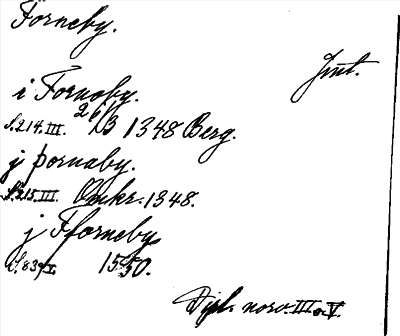 Forneby.
Jmt.
i Fornoby.
S. 214. III. 26/1 1348 Berg.
j þornaby.
S. 215. III. Omkr. 1348.
j Fforneby
S. 839. V. 1550.
Dipl. norv. III o. V.